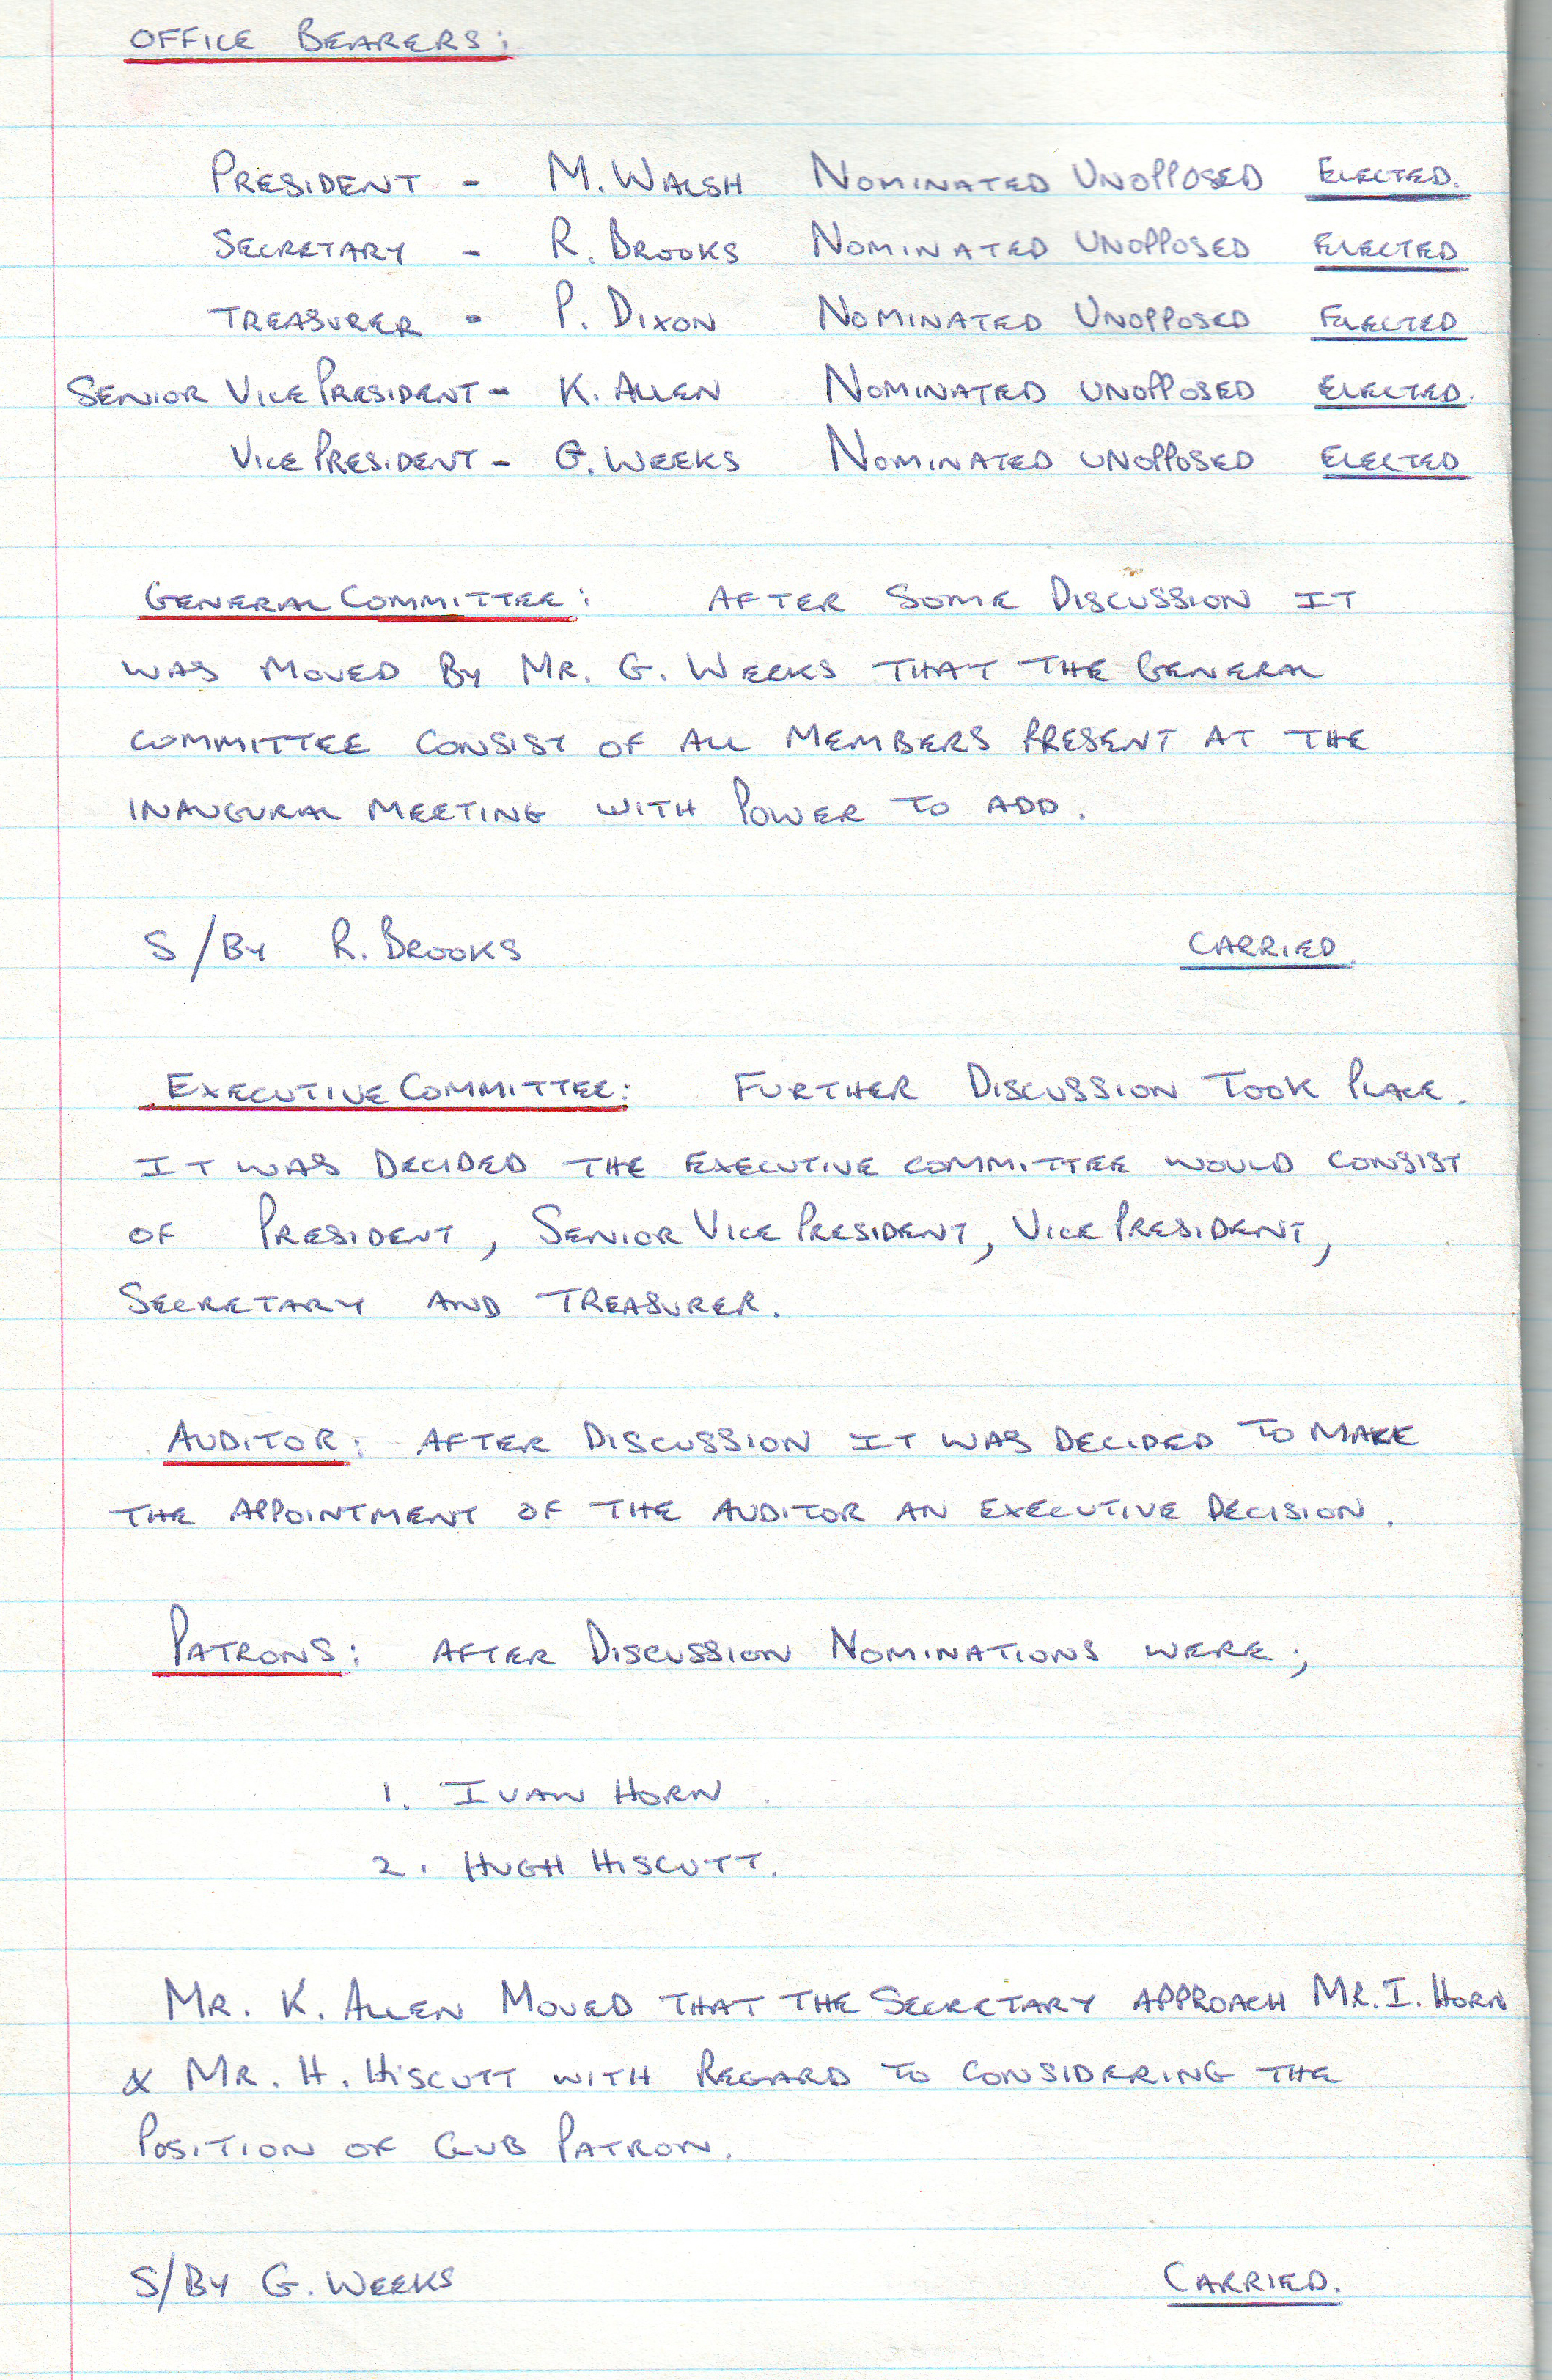 OFFICE BEARERS:
PRESIDENT - M. WALSH NOMINATED UNOPPOSED ELECTED.
SECRETARY - R. BROOKS NOMINATED UNOPPOSED ELECTED
TREASURER - P. DIXON NOMINATED UNOPPOSED ELECTED
SENIOR VICE PRESIDENT - K. ALLEN NOMINATED UNOPPOSED ELECTED.
VICE PRESIDENT - G. WEEKS NOMINATED UNOPPOSED ELECTED
GENERAL COMMITTEE: AFTER SOME DISCUSSION IT
WAS MOVED BY MR. G. WEEKS THAT THE GENERAL
COMMITTEE CONSIST OF ALL MEMBERS PRESENT AT THE
INAUGURAL MEETING WITH POWER TO ADD.
S/BY R. BROOKS CARRIED.
EXECUTIVE COMMITTEE: FURTHER DISCUSSION TOOK PLACE.
IT WAS DECIDED THE EXECUTIVE COMMITTEE WOULD CONSIST
OF PRESIDENT, SENIOR VICE PRESIDENT, VICE PRESIDENT,
SECRETARY AND TREASURER.
AUDITOR: AFTER DISCUSSION IT WAS DECIDED TO MAKE
THE APPOINTMENT OF THE AUDITOR AN EXECUTIVE DECISION.
PATRONS: AFTER DISCUSSION NOMINATIONS WERE;
1. IVAN HORN.
2. HUGH HISCUTT.
MR. K. ALLEN MOVED THAT THE SECRETARY APPROACH MR. I. HORN
& MR. H. HISCUTT WITH REGARD TO CONSIDERING THE
POSITION OF CLUB PATRON.
S/BY G. WEEKS CARRIED.